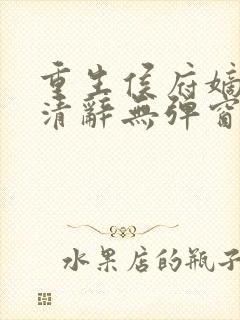 重生侯府嫡
清辭無彈窗
水果店的瓶子